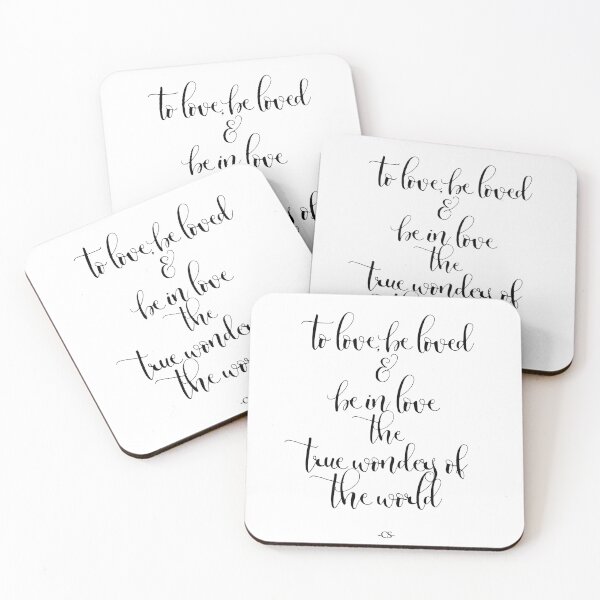 to love, be loved
&
be in love
to love, be loved
&
be in love
the
true wonders of
to love, be loved
&
be in love
the
true wonder
the wor
to love, be loved
&
be in love
the
true wonders of
the world
-CS-